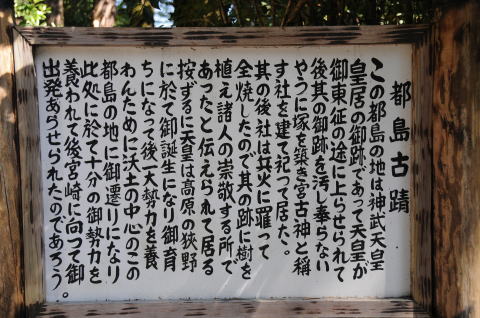 都島古蹟
この都島の地は神武天皇
皇居の御跡であって天皇が
御東征の途に上らせられて
後其の御跡を汚し奉らない
やうに塚を築き宮古神と稱
す社を建て祀って居た。
其の後社は兵火に罹って
全焼したので其の跡に樹を
植え諸人の崇敬する所で
あったと伝えられて居る
按ずるに天皇は高原の狭野
に於て御誕生になり御育
ちになって後、大勢力を養
わんために沃土の中心のこの
都島の地に御遷りになり
此処に於て十分の御勢力を
養われて後宮崎に向って御
出発あらせられたのであろう。